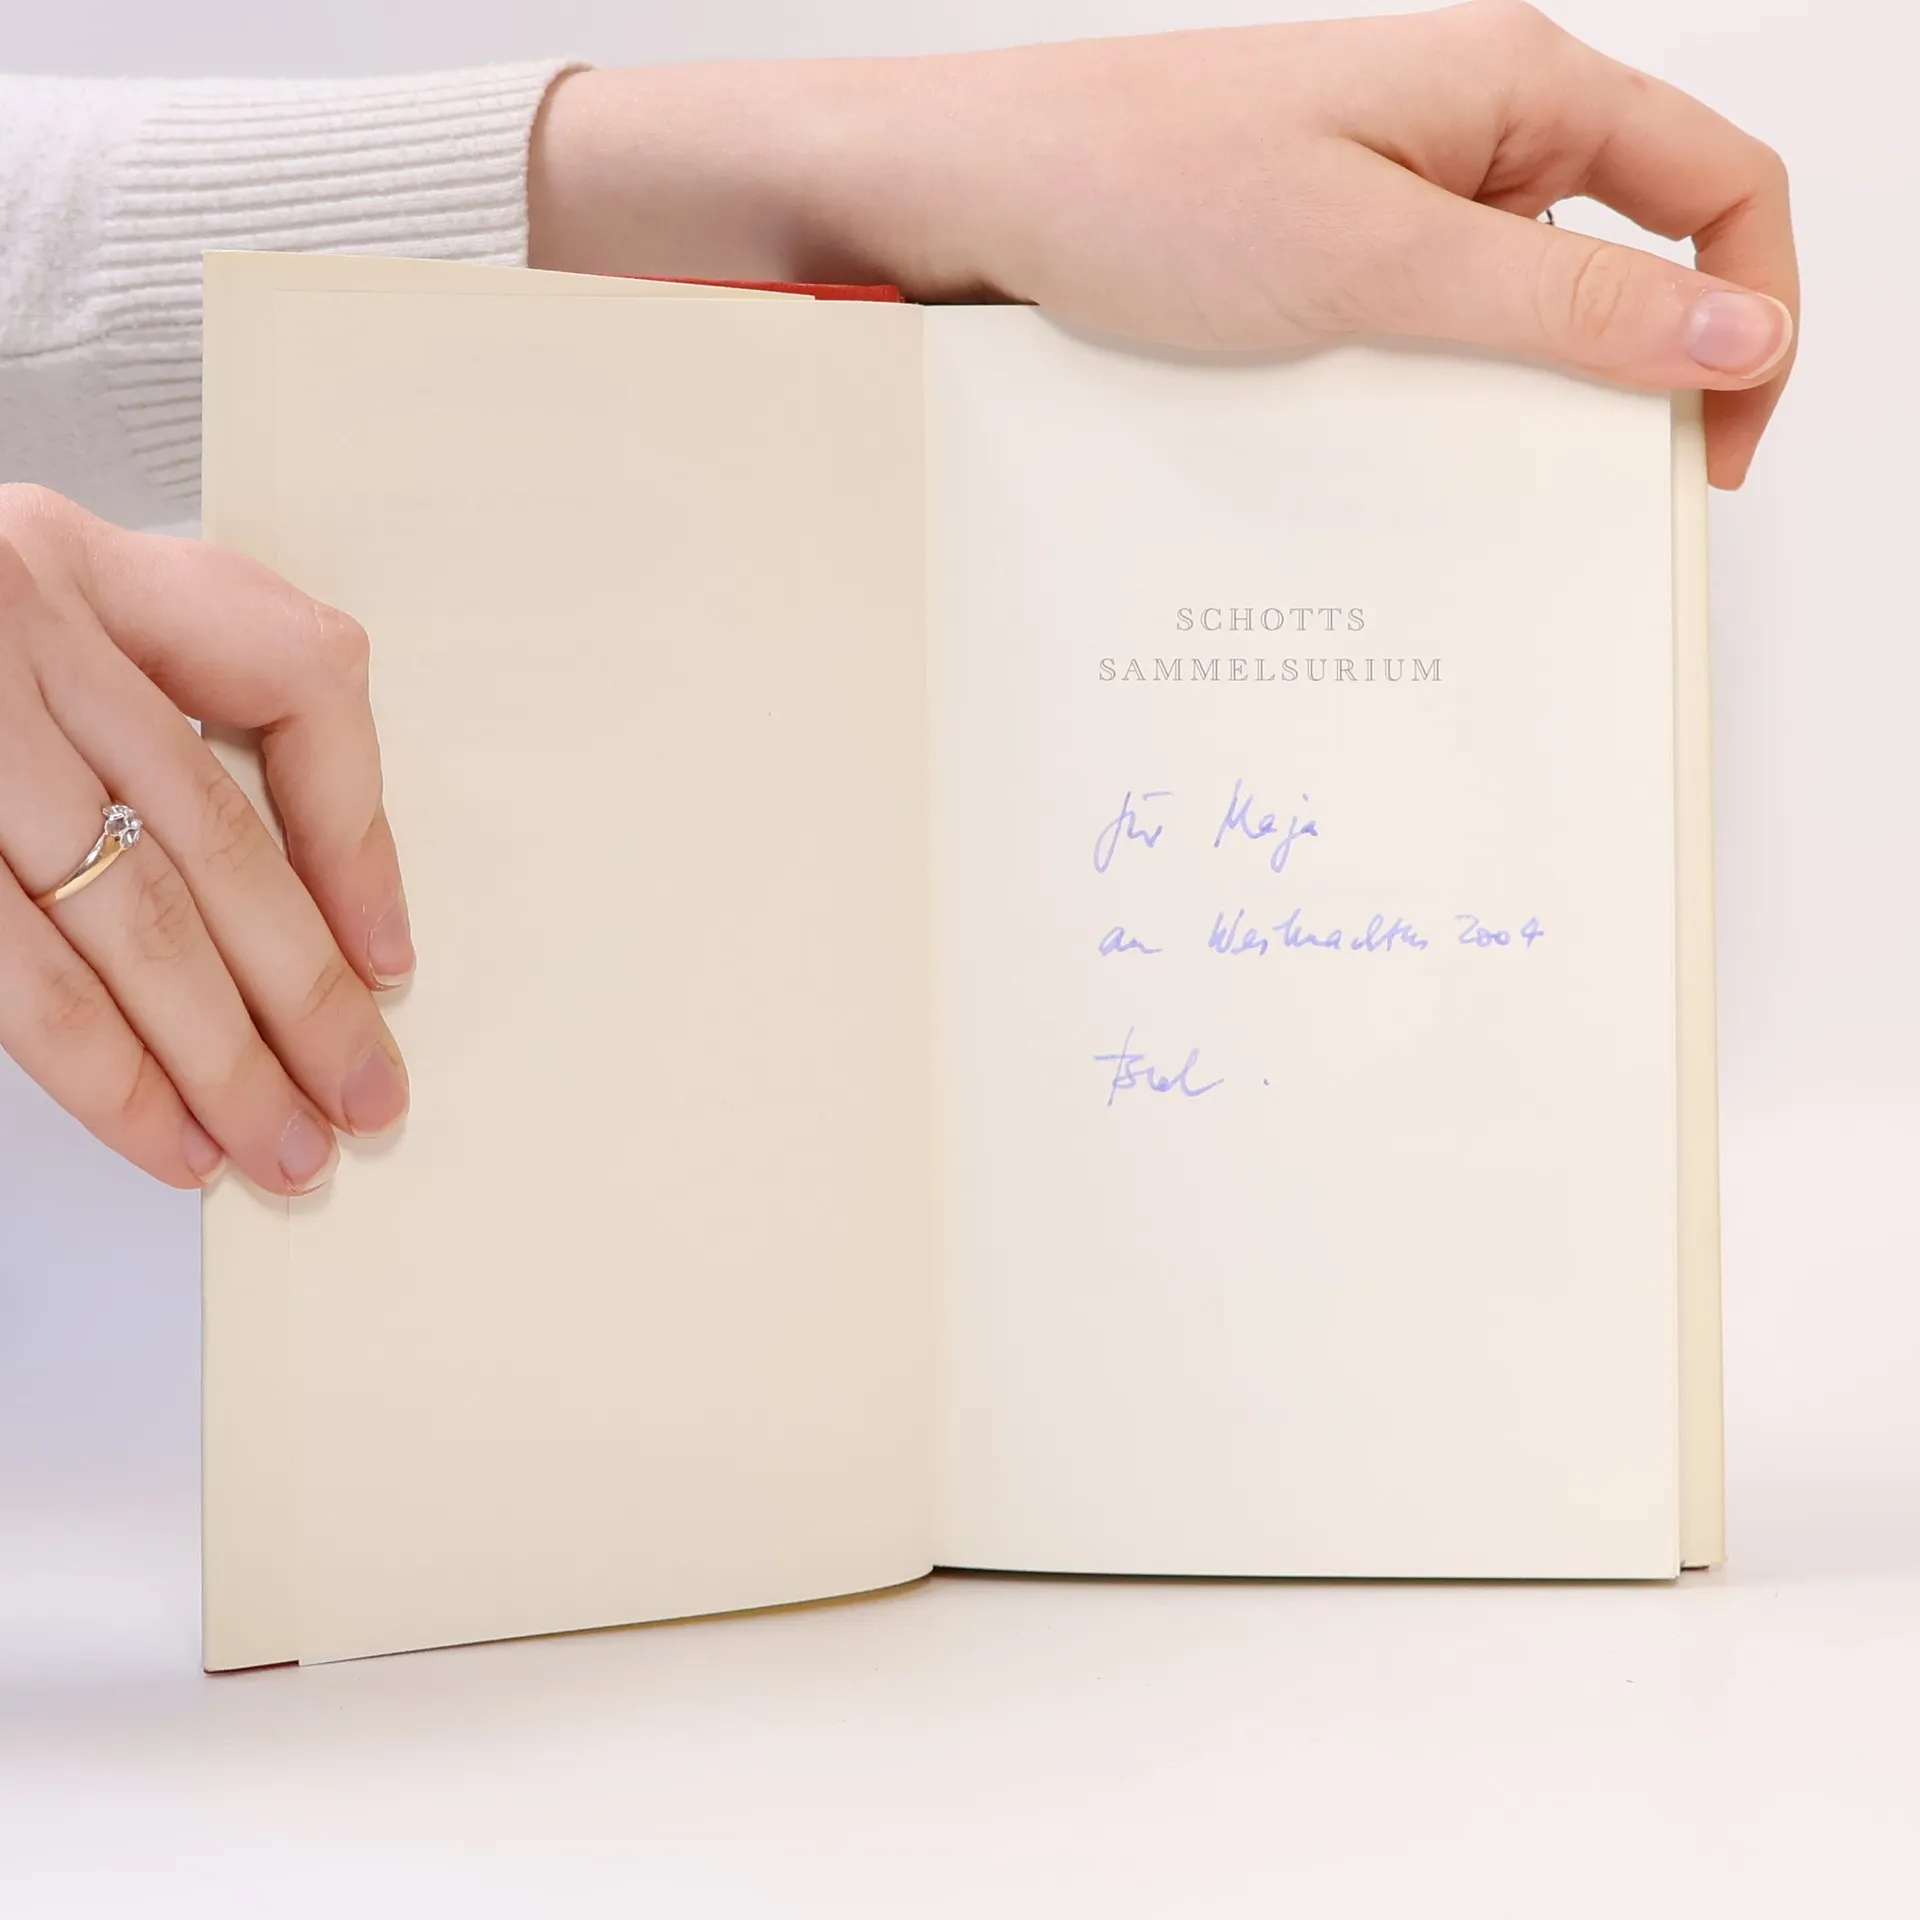 SCHOTTS
SAMMELSURIUM
für Maja
an Weihnachten 2004